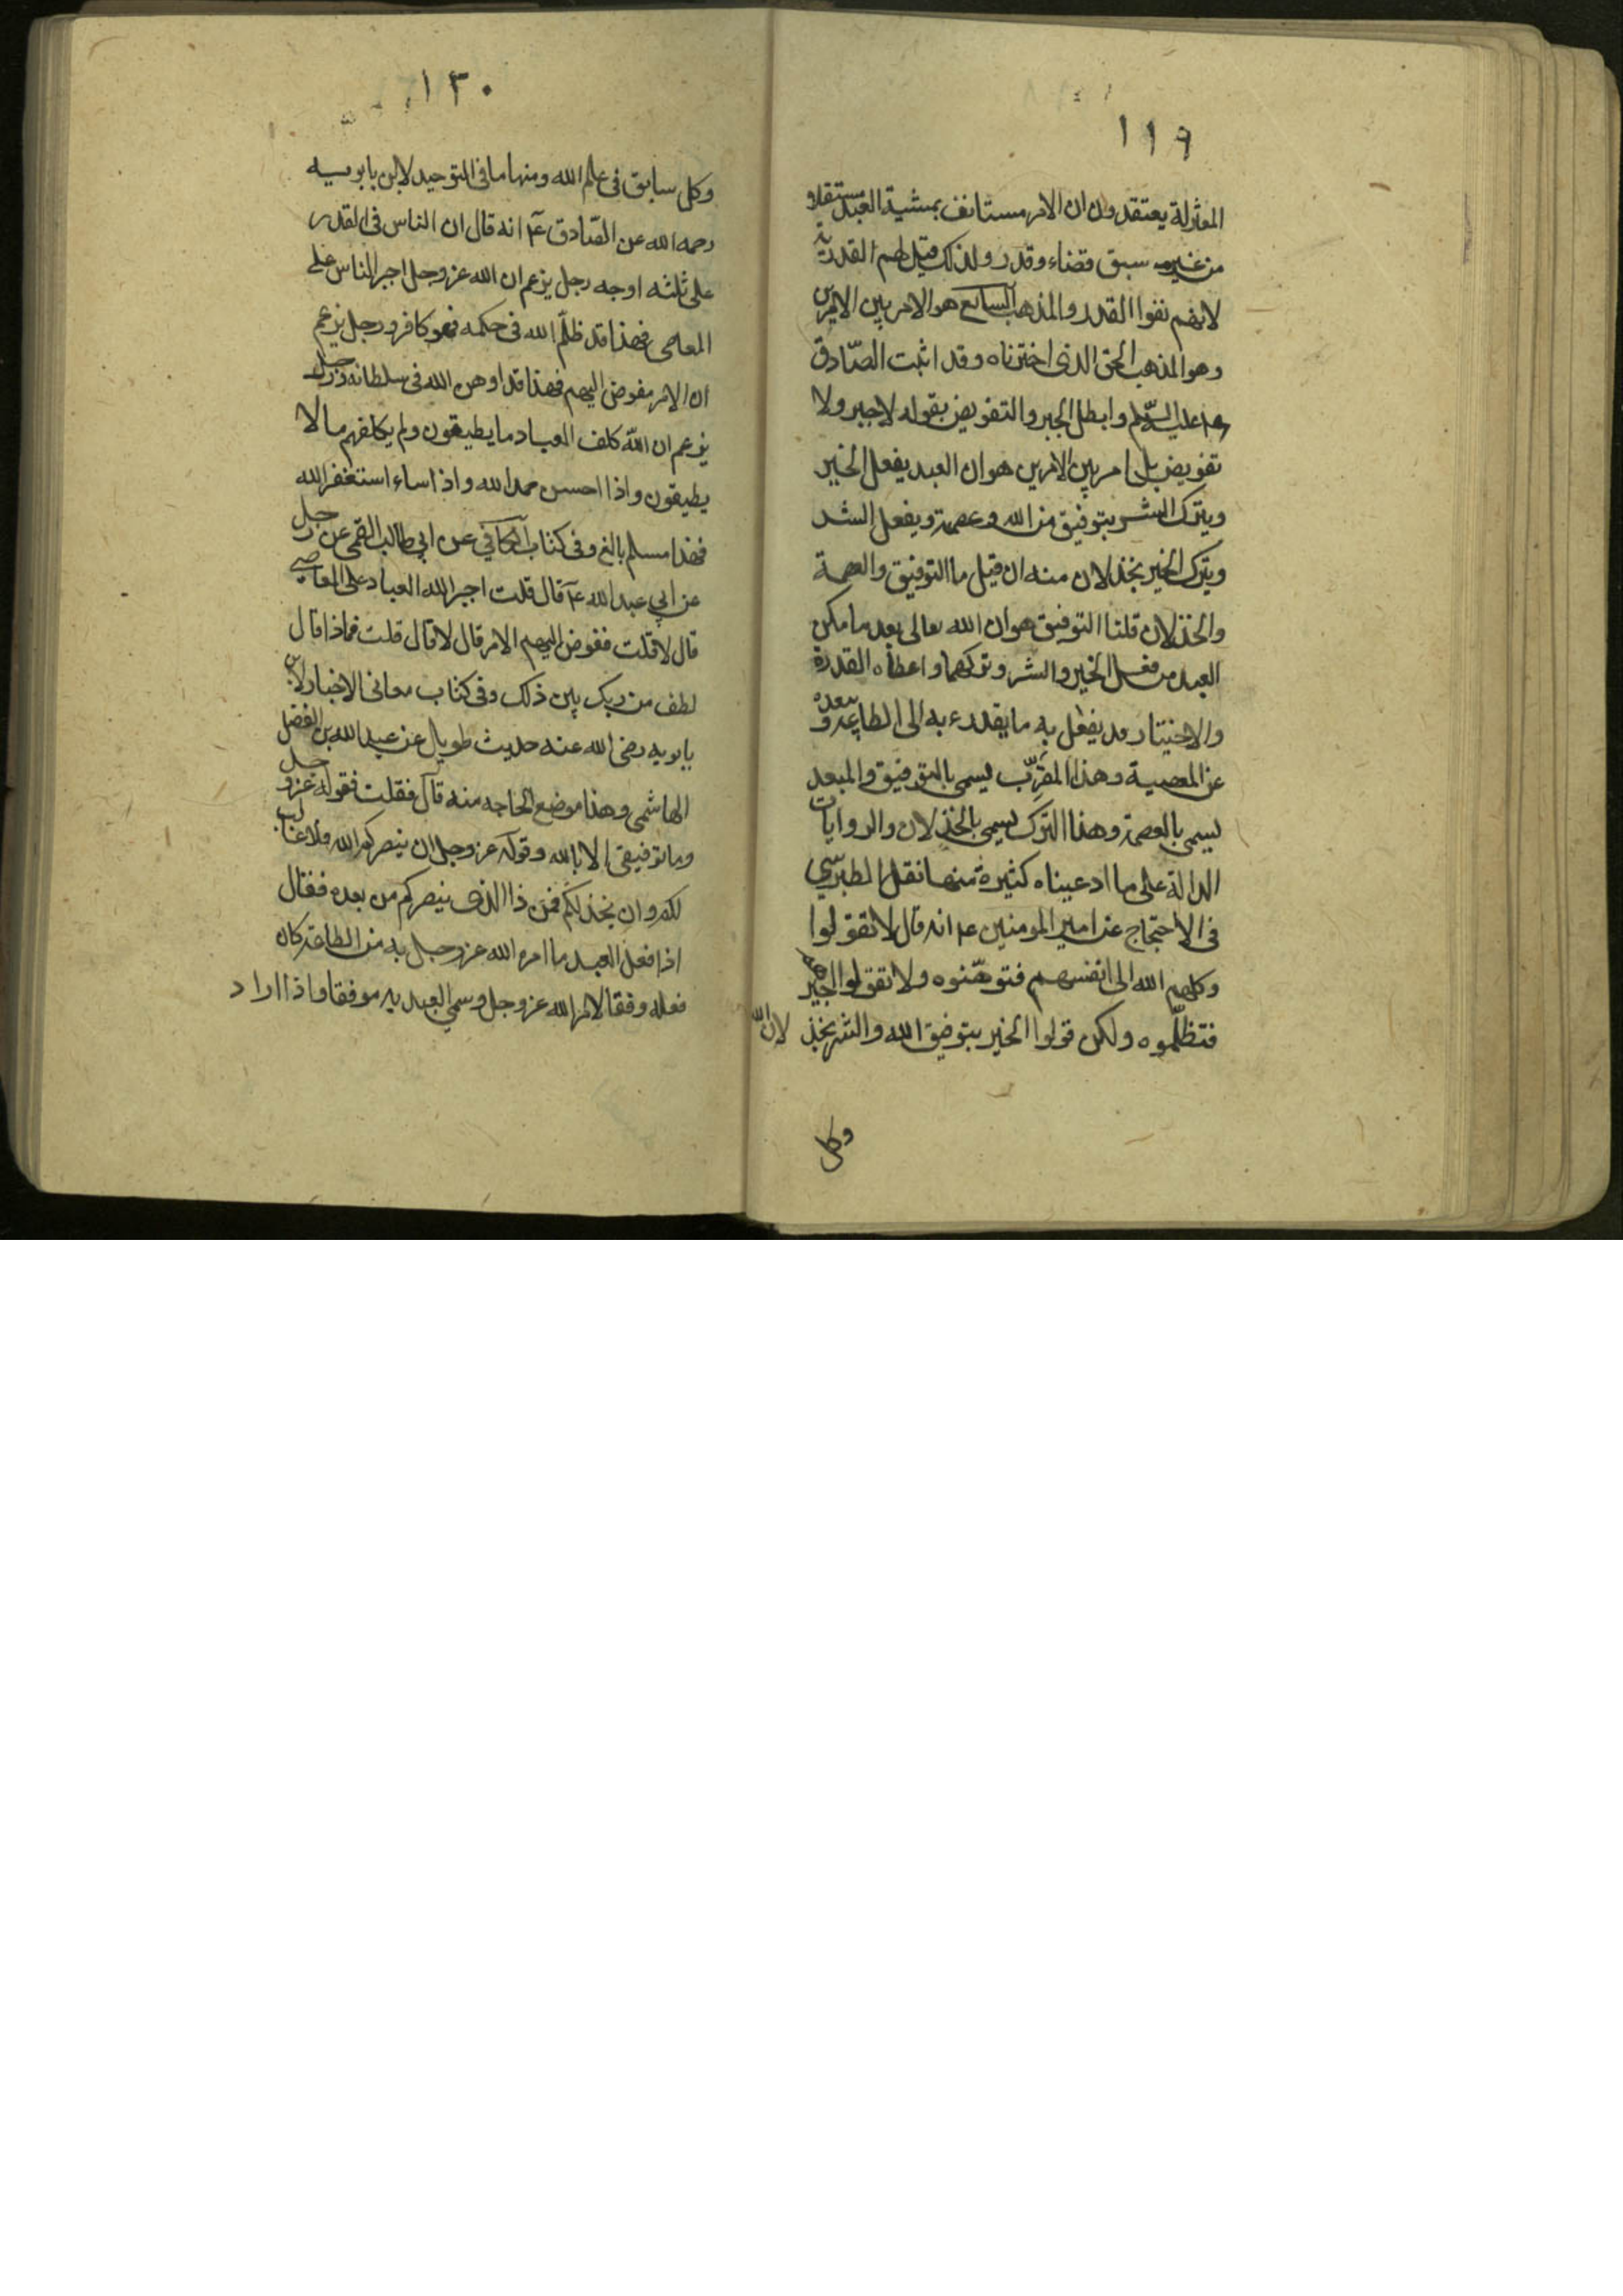 ١١٩
المعتزلة يعتقدون ان الامر مستانف بمشية العبد مستقلا و
من غير سبق قضاء وقدر ولذلك قيل لهم القدرية
لانهم نفوا القدر والمذهب السابع هو الامر بين الامرين
وهو المذهب الحق الذى اخترناه وقد اثبت الصّادق
عليه السّلم وابطل الجبر والتفويض بقوله لاجبر ولا
تفويض بل امر بين الامرين هو ان العبد يفعل الخير
ويترك الشر بتوفيق من الله وعصمة ويفعل الشر
ويترك الخير بخذلان منه ان قيل ما التوفيق والعصمة
والخذلان قلنا التوفيق هو ان الله تعالى بعد ما مكن
العبد من فعل الخير والشر وتركهما واعطاه القدرة
والاختيار قد يفعل به ما يقدره به الى الطاعة و يبعده
عن المعصية وهذا المقرّب يسمى بالتوفيق والمبعد
يسمى بالعصمة وهذا الترك يسمى بالخذلان والروايات
الدالة على ما ادعيناه كثيرة منها نقل الطبرسي
فى الاحتجاج عن امير المومنين ع انه قال لا تقولوا
وكلهم الله الى انفسهم فتوهّنوه ولا تقولوا اجبرهم
فتظلّموه ولكن قولوا الخير بتوفيق الله والشر بخذلان الله
وكل
١٣٠
وكل سابق فى علم الله ومنها ما فى التوحيد لابن بابويه
رحمه الله عن الصّادق ع انه قال ان الناس فى القدر
على ثلثه اوجه رجل يزعم ان الله عز وجل اجبر الناس على
المعاصى فهذا قد ظلّم الله فى حكمه فهو كافر ورجل يزعم
ان الامر مفوض اليهم فهذا قد اوهن الله فى سلطانه ورجل
يزعم ان الله كلف العباد ما يطيقون ولم يكلفهم ما لا
يطيقون واذا احسن حمد الله واذا ساء استغفر الله
فهذا مسلم بالغ وفى كتاب الكافي عن ابي طالب القمى عن رجل
عن ابي عبد الله ع قال قلت اجبر الله العباد على المعاصي
قال لا قلت ففوض اليهم الامر قال لا قال قلت فماذا قال
لطف من ربك بين ذلك وفى كتاب معانى الاخبار لابن
بابويه رضى الله عنه حديث طويل عن عبد الله بن الفضل
الهاشمى وهذا موضع الحاجه منه قال فقلت فقوله عز و جل
وما توفيقى الا بالله وقوله عز وجل ان ينصركم الله فلا غالب
لكم وان يخذلكم فمن ذا الذى ينصركم من بعده فقال
اذا فعل العبد ما امره الله عز وجل به من الطاعة كان
فعله وفقا لامر الله عز وجل وسمي العبد به موفقا واذا اراد